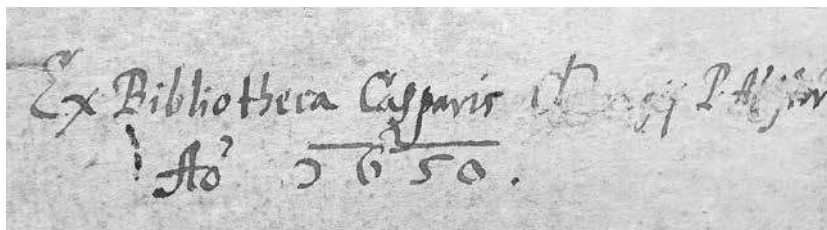 Ex Bibliotheca Casparis
Ao 1650.